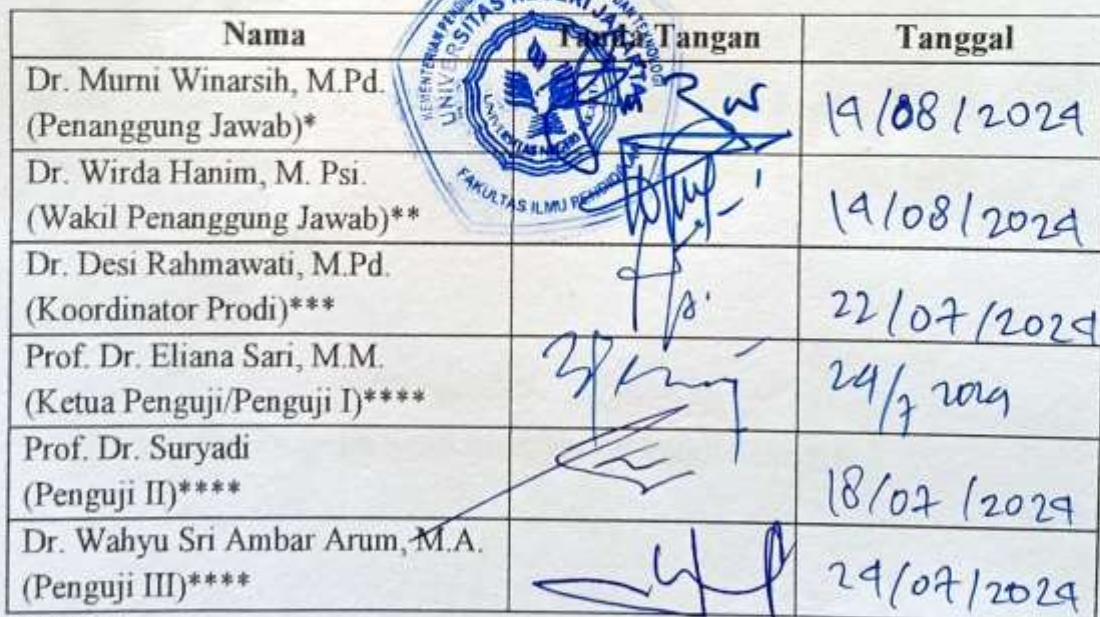 Nama Tanda Tangan Tanggal
Dr. Murni Winarsih, M.Pd.
(Penanggung Jawab)* 14/08/2024
Dr. Wirda Hanim, M. Psi.
(Wakil Penanggung Jawab)** 14/08/2024
Dr. Desi Rahmawati, M.Pd.
(Koordinator Prodi)*** 22/07/2024
Prof. Dr. Eliana Sari, M.M.
(Ketua Penguji/Penguji I)**** 24/7 2024
Prof. Dr. Suryadi
(Penguji II)**** 18/07/2024
Dr. Wahyu Sri Ambar Arum, M.A.
(Penguji III)**** 24/07/2024
FAKULTAS ILMU PENDIDIKAN